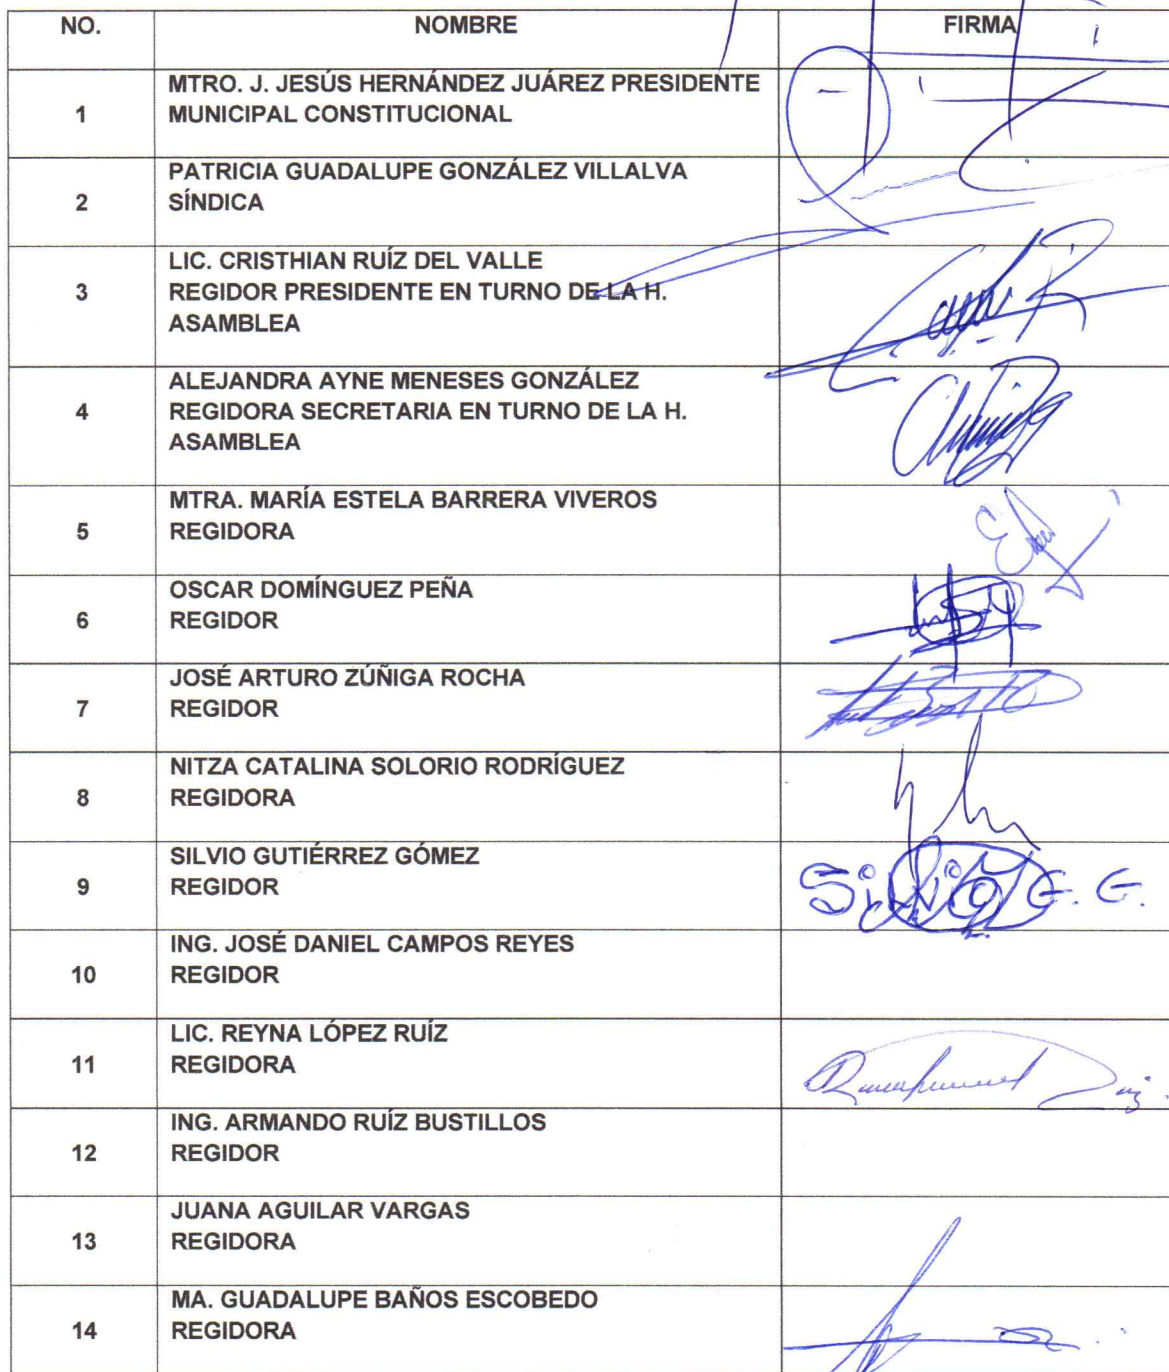 NO. NOMBRE FIRMA
1 MTRO. J. JESÚS HERNÁNDEZ JUÁREZ PRESIDENTE
MUNICIPAL CONSTITUCIONAL
2 PATRICIA GUADALUPE GONZÁLEZ VILLALVA
SÍNDICA
3 LIC. CRISTHIAN RUÍZ DEL VALLE
REGIDOR PRESIDENTE EN TURNO DE LA H.
ASAMBLEA
4 ALEJANDRA AYNE MENESES GONZÁLEZ
REGIDORA SECRETARIA EN TURNO DE LA H.
ASAMBLEA
5 MTRA. MARÍA ESTELA BARRERA VIVEROS
REGIDORA
6 OSCAR DOMÍNGUEZ PEÑA
REGIDOR
7 JOSÉ ARTURO ZÚÑIGA ROCHA
REGIDOR
8 NITZA CATALINA SOLORIO RODRÍGUEZ
REGIDORA
9 SILVIO GUTIÉRREZ GÓMEZ
REGIDOR
Silvio G. G.
10 ING. JOSÉ DANIEL CAMPOS REYES
REGIDOR
11 LIC. REYNA LÓPEZ RUÍZ
REGIDORA
12 ING. ARMANDO RUÍZ BUSTILLOS
REGIDOR
13 JUANA AGUILAR VARGAS
REGIDORA
14 MA. GUADALUPE BAÑOS ESCOBEDO
REGIDORA